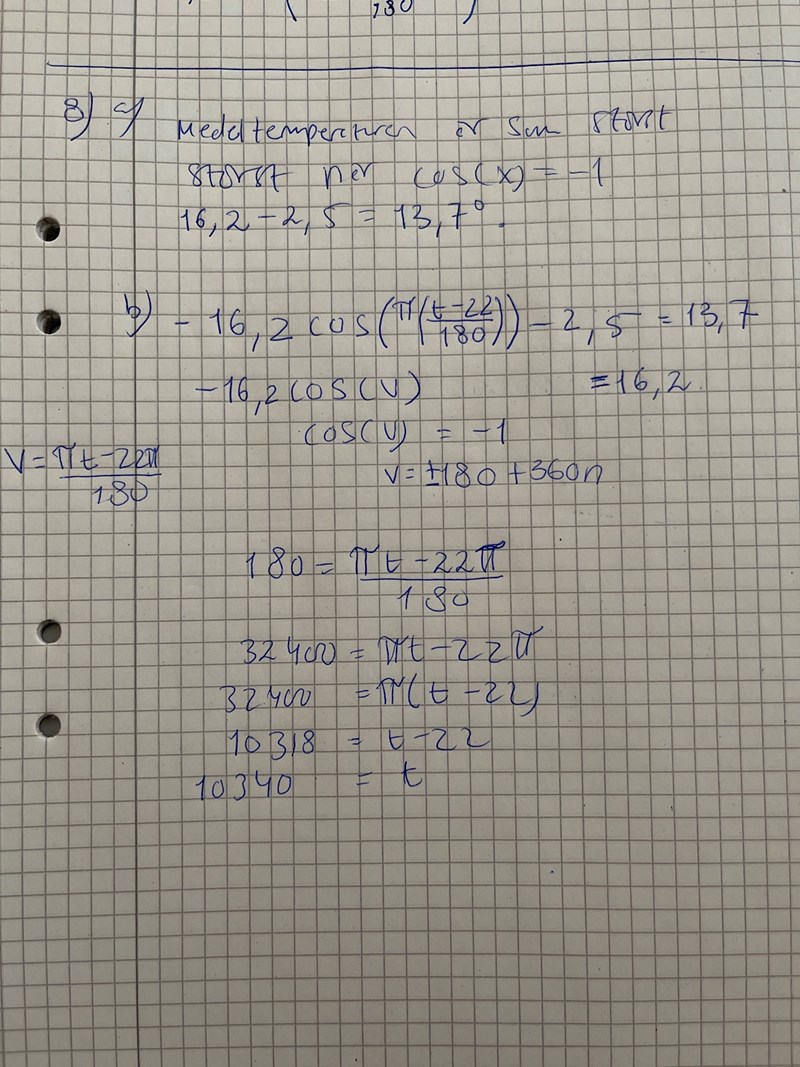 180
8) a) Medeltemperaturen är som störst
störst när cos(x) = -1
16,2 - 2,5 = 13,7°.
b) -16,2 cos(π(t-22/180)) - 2,5 = 13,7
-16,2 cos(v) = 16,2.
cos(v) = -1
v = πt-22π/180
v = ±180 + 360n
180 = πt - 22π/180
32400 = πt - 22π
32400 = π(t - 22)
10318 = t - 22
10340 = t